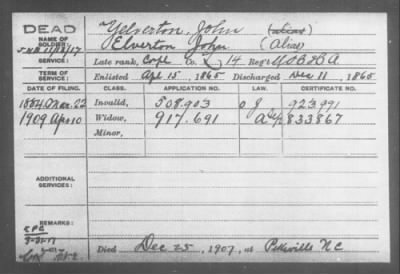 DEAD
NAME OF SOLDIER: Yelverton, John (alias)
Elverton John (Alias)
SERVICE: Late rank, Corpl Co. 14 Reg't U S C H A
TERM OF SERVICE: Enlisted Apl 15, 1865 Discharged Dec 11, 1865
DATE OF FILING. CLASS. APPLICATION NO. LAW. CERTIFICATE NO.
1884 Mar. 22 Invalid, 508.903 923,991
1909 Apr 10 Widow, 917.691 833867
Minor,
ADDITIONAL SERVICES:
REMARKS:
Died Dec 25, 1907, at Pikeville N C